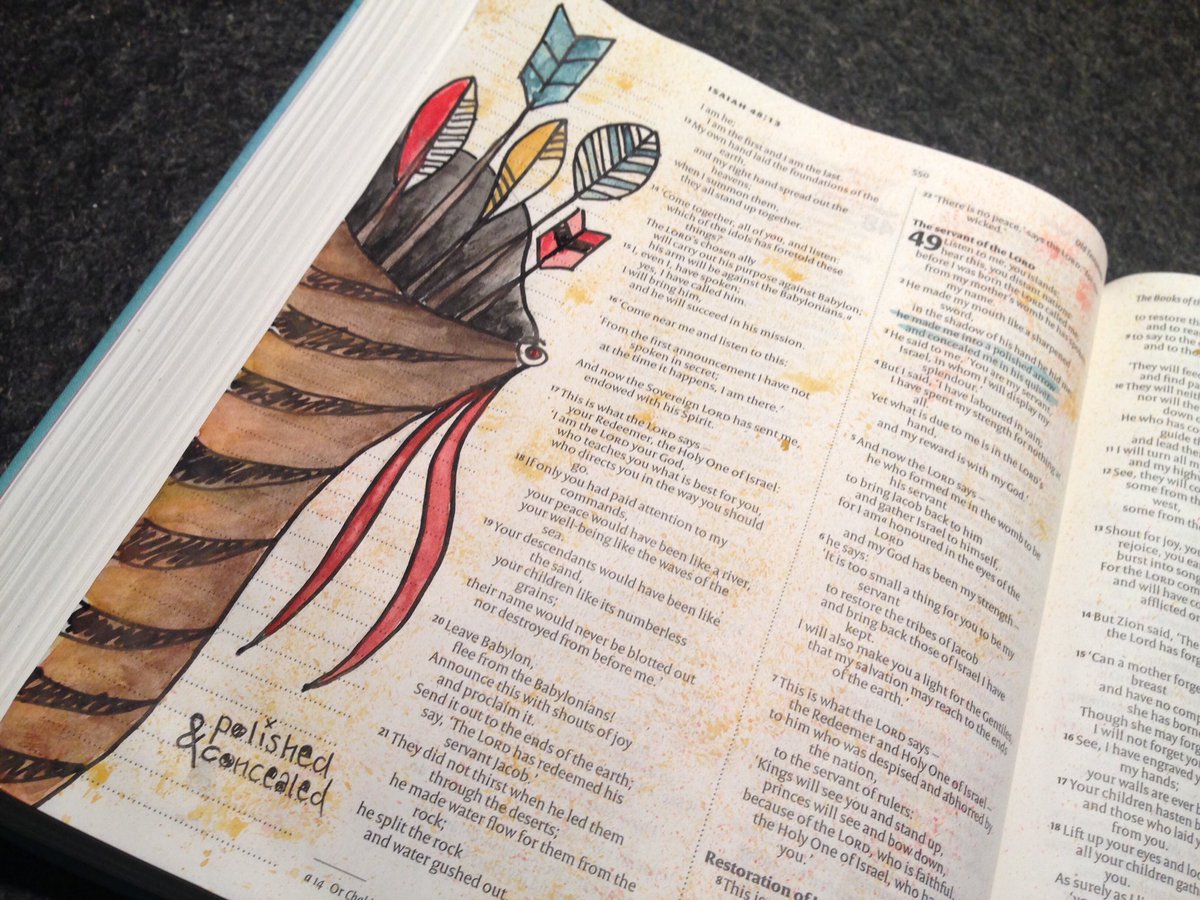 ISAIAH 48:13
I am he;
I am the first and I am the last.
13 My own hand laid the foundations of the
earth,
and my right hand spread out the
heavens;
when I summon them,
they all stand up together.
14 'Come together, all of you, and listen:
which of the idols has foretold these
things?
The LORD's chosen ally
will carry out his purpose against Babylon;
his arm will be against the Babylonians.a
15 I, even I, have spoken;
yes, I have called him.
I will bring him,
and he will succeed in his mission.
16 'Come near me and listen to this:
'From the first announcement I have not
spoken in secret;
at the time it happens, I am there.'
And now the Sovereign LORD has sent me,
endowed with his Spirit.
17 This is what the LORD says –
your Redeemer, the Holy One of Israel:
'I am the LORD your God,
who teaches you what is best for you,
who directs you in the way you should
go.
18 If only you had paid attention to my
commands,
your peace would have been like a river,
your well-being like the waves of the
sea.
19 Your descendants would have been like
the sand,
your children like its numberless
grains;
their name would never be blotted out
nor destroyed from before me.'
20 Leave Babylon,
flee from the Babylonians!
Announce this with shouts of joy
and proclaim it.
Send it out to the ends of the earth;
say, 'The LORD has redeemed his
servant Jacob.'
21 They did not thirst when he led them
through the deserts;
he made water flow for them from the
rock;
he split the rock
and water gushed out.
a 14 Or
polished
& concealed
550
22 'There is no peace,' says the LORD, 'for the
wicked.'
The servant of the LORD
49 Listen to me, you islands;
hear this, you distant nations:
before I was born the LORD called me;
from my mother's womb he has spoken
my name.
2 He made my mouth like a sharpened
sword,
in the shadow of his hand he hid me;
he made me into a polished arrow
and concealed me in his quiver.
3 He said to me, 'You are my servant,
Israel, in whom I will display my
splendour.'
4 But I said, 'I have laboured in vain;
I have spent my strength for nothing at
all.
Yet what is due to me is in the LORD's
hand,
and my reward is with my God.'
5 And now the LORD says –
he who formed me in the womb to be
his servant
to bring Jacob back to him
and gather Israel to himself,
for I am honoured in the eyes of the
LORD
and my God has been my strength –
6 he says:
'It is too small a thing for you to be my
servant
to restore the tribes of Jacob
and bring back those of Israel I have
kept.
I will also make you a light for the Gentiles,
that my salvation may reach to the ends
of the earth.'
7 This is what the LORD says –
the Redeemer and Holy One of Israel –
to him who was despised and abhorred by
the nation,
to the servant of rulers:
'Kings will see you and stand up,
princes will see and bow down,
because of the LORD, who is faithful,
the Holy One of Israel, who has
you.'
Restoration of
8 This is
The Books of
to restore
and to
9 to say to the
and to
They will feed
and find
10 They will neither
nor will the
down
He who has co
guide
and lead them
11 I will turn all
and my high
12 See, they will
some from
west,
some from the
13 Shout for joy, you
rejoice, you ea
burst into song
For the LORD com
and will have
afflicted
14 But Zion said, 'The
the Lord has forg
15 'Can a mother forge
breast
and have no com
she has born
Though she may forg
I will not forget yo
16 See, I have engraved
my hands;
your walls are ever
17 Your children hasten b
and those who laid y
from you.
18 Lift up your eyes and lo
all your children gath
you.
As surely as I li